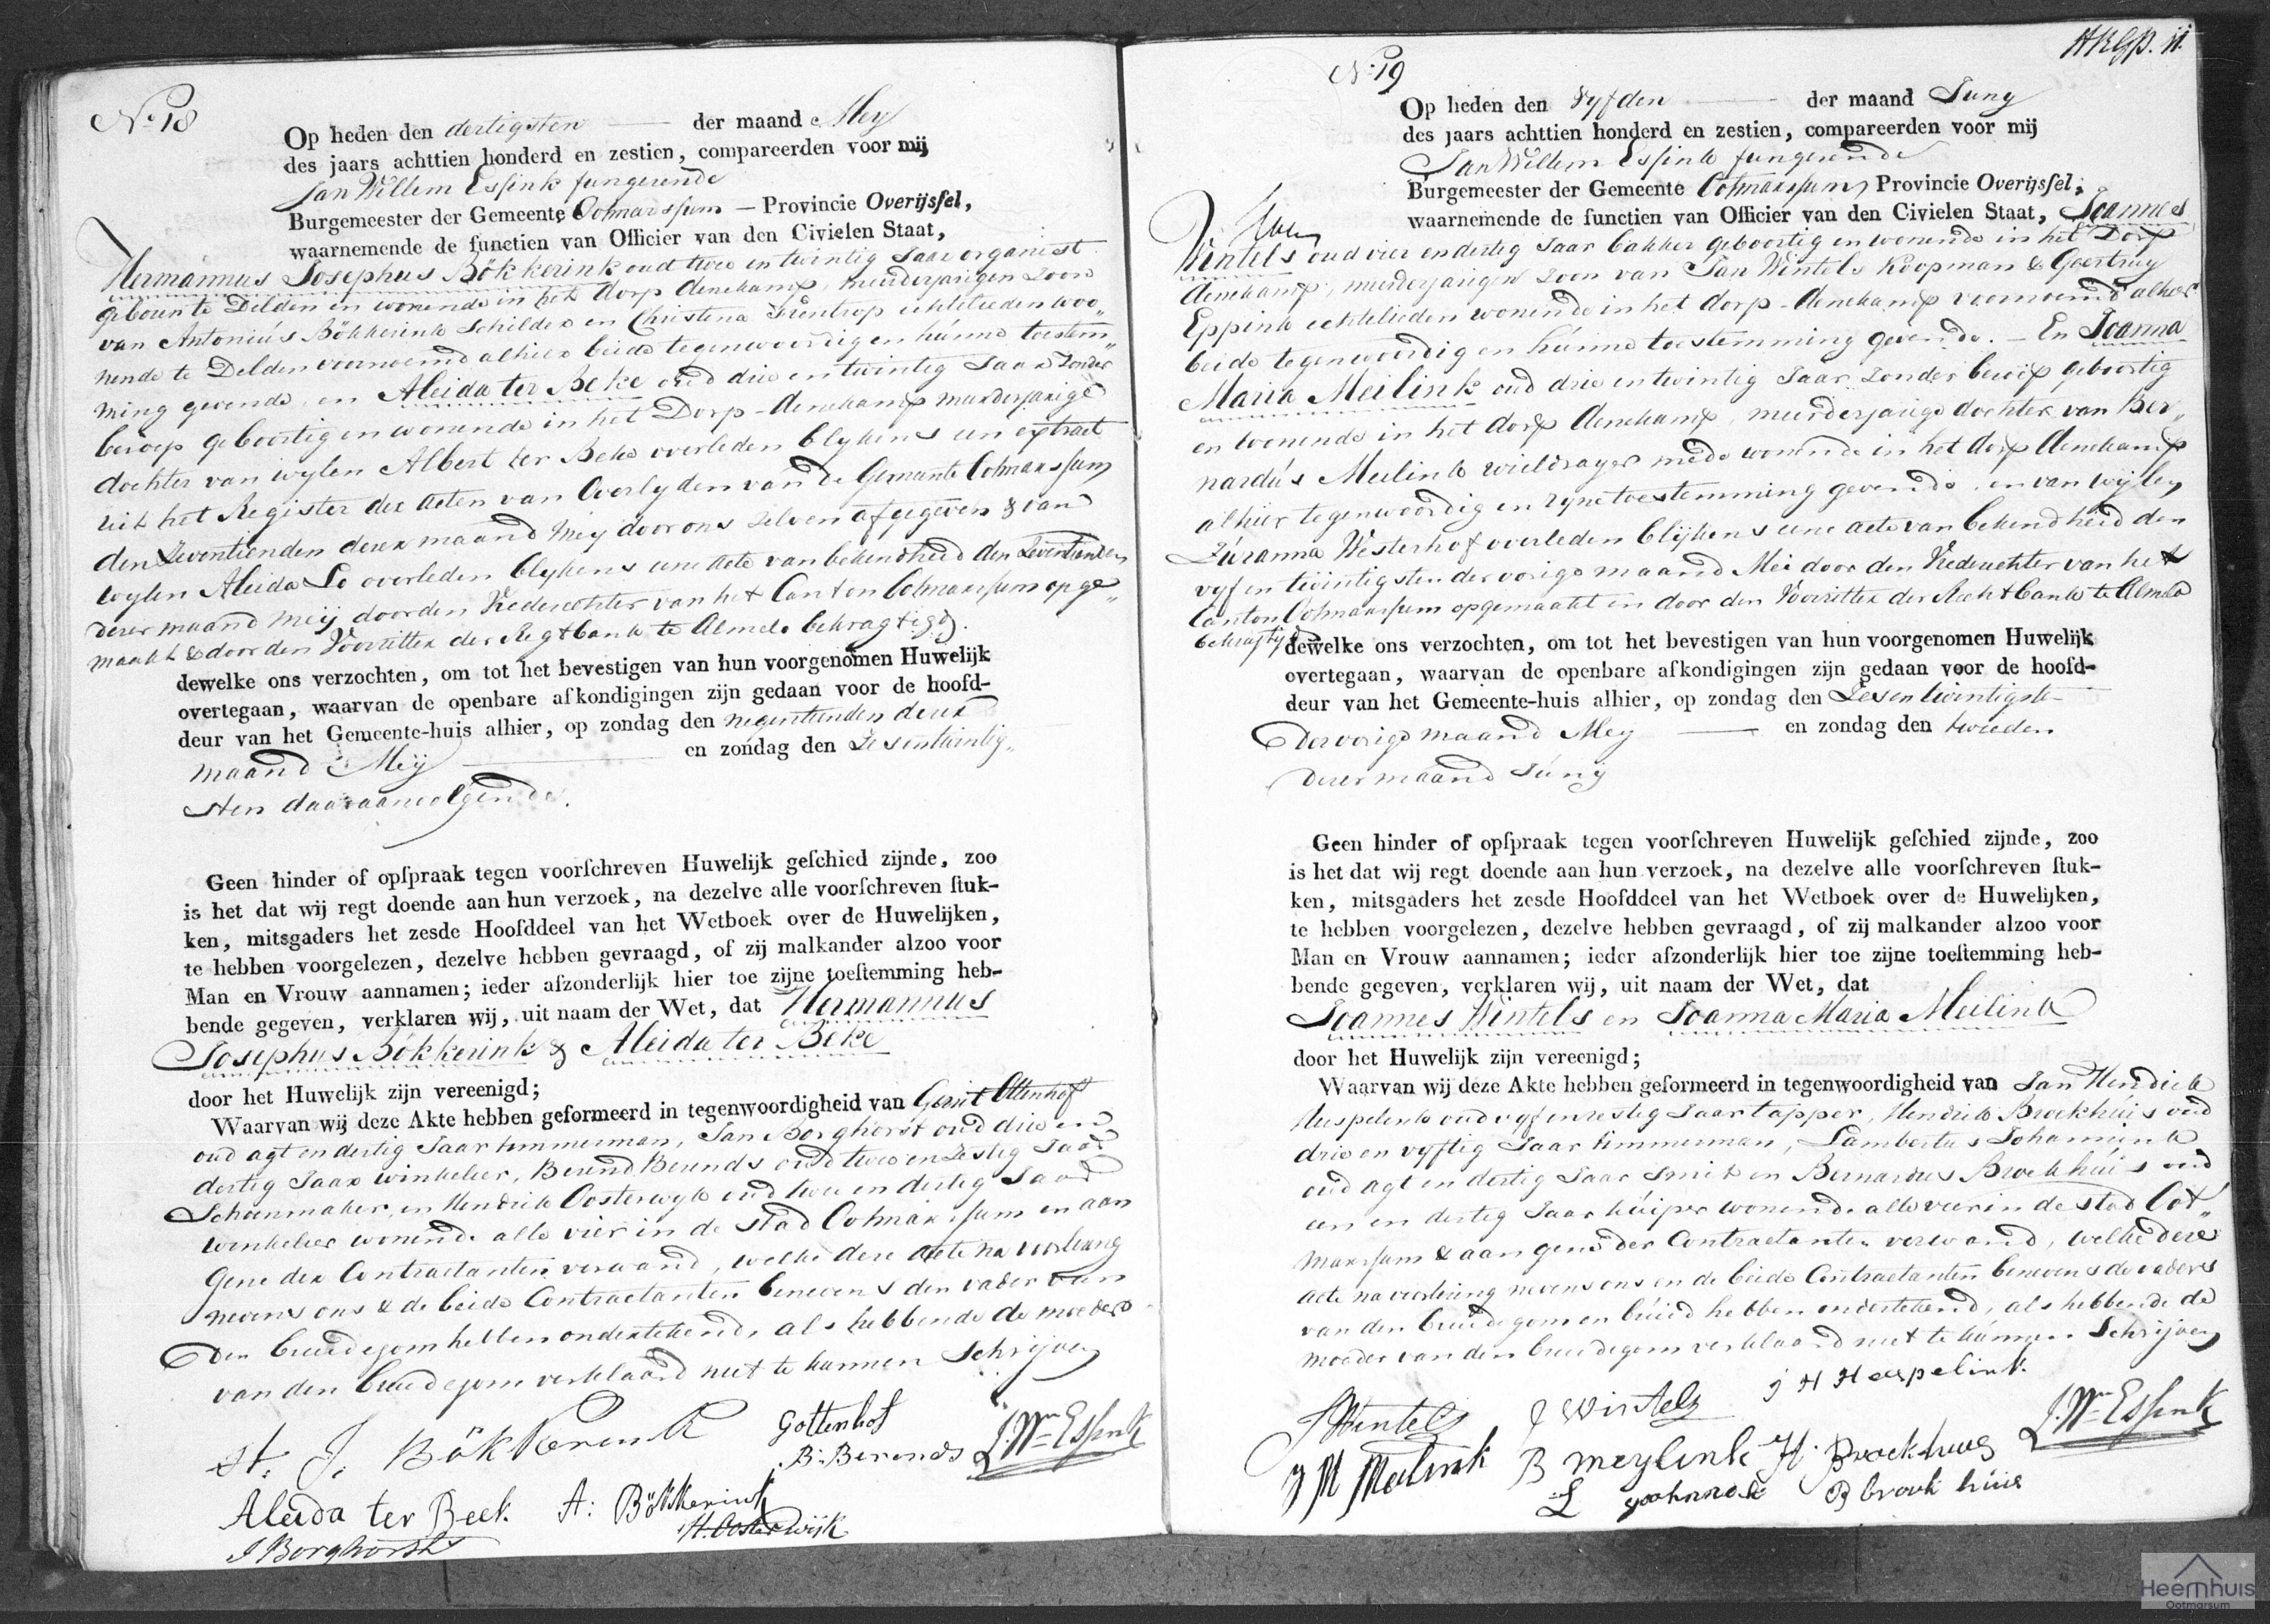 No. 18
Op heden den dertigsten der maand Mey
des jaars achttien honderd en zestien, compareerden voor mij
Jan Willem Essink fungerende
Burgemeester der Gemeente Ootmarssum — Provincie Overijsſel,
waarnemende de functien van Officier van den Civielen Staat,
Hermannus Josephus Bökkerink oud twee en twintig Jaar organist
geboren te Delden en wonende in het dorp Denekamp, meerderjarigen zoon
van Antonius Bökkerink Schilder en Christina Frentrop echtelieden woo„
nende te Delden voornoemd alhier beide tegenwoordig en hunne toestem„
ming gevende, en Aleida ter Beke oud drie en twintig Jaar zonder
beroep geboortig en wonende in het Dorp Denekamp meerderjarige
dochter van wylen Albert ter Beke overleden blykens een extract
uit het Register der Acten van Overlyden van de Gemeente Ootmarssum
den Zeventienden dezer maand Mey door ons zelven afgegeven & van
wylen Aleida Lo overleden blykens eene Acte van bekendheid den Zeventienden
dezer maand Meij door den Vrederechter van het Canton Ootmarssum opge„
maakt & door den Voorzitter der Regtbank te Almelo bekragtigd.
dewelke ons verzochten, om tot het bevestigen van hun voorgenomen Huwelijk
overtegaan, waarvan de openbare afkondigingen zijn gedaan voor de hoofd-
deur van het Gemeente-huis alhier, op zondag den negentienden dezer
maand Meij en zondag den Zesentwintig„
sten daaraanvolgende.
Geen hinder of opſpraak tegen voorſchreven Huwelijk geſchied zijnde, zoo
is het dat wij regt doende aan hun verzoek, na dezelve alle voorſchreven ſtuk-
ken, mitsgaders het zesde Hoofddeel van het Wetboek over de Huwelijken,
te hebben voorgelezen, dezelve hebben gevraagd, of zij malkander alzoo voor
Man en Vrouw aannamen; ieder afzonderlijk hier toe zijne toeſtemming heb-
bende gegeven, verklaren wij, uit naam der Wet, dat Hermannus
Josephus Bökkerink & Aleida ter Beke
door het Huwelijk zijn vereenigd;
Waarvan wij deze Akte hebben geformeerd in tegenwoordigheid van Gerrit Ottenhof
oud agt en dertig Jaar timmerman, Jan Borghorst oud drie en
dertig Jaar winkelier, Berend Berends oud twee en Zestig Jaar
Schoenmaker, en Hendrik Oosterwyk oud twee en dertig Jaar
winkelier wonende alle vier in de stad Ootmarssum en aan
gene der Contractanten verwand, welke deze acte na voorlezing
nevens ons & de beide Contractanten benevens den vader van
den bruidegom hebben ondertekend, als hebbende de moeder
van den bruidegom verklaard niet te kunnen Schrijven
H. J. Bökkerink
Gottenhof
B: Berends
J. Wm Essink
Aleida ter Beek
A: Bökkerink
H. Oosterwijk
J Borghorst
No. 19
Op heden den Vyfden der maand Juny
des jaars achttien honderd en zestien, compareerden voor mij
Jan Willem Essink fungerende
Burgemeester der Gemeente Ootmarssum, Provincie Overijsſel,
waarnemende de functien van Officier van den Civielen Staat, Joannes
Wintels oud vier en dertig Jaar bakker geboortig en wonende in het Dorp
Denekamp, meerderjarigen zoon van Jan Wintels Koopman & Geertruy
Eppink echtelieden wonende in het dorp Denekamp voornoemd alhier
beide tegenwoordig en hunne toestemming gevende. — En Joanna
Maria Meilink oud drie en twintig Jaar zonder beroep geboortig
en wonende in het dorp Denekamp, meerderjarige dochter van Ber„
nardus Meilink wieldrayer mede wonende in het dorp Denekamp
alhier tegenwoordig en zyne toestemming gevende, en van wijlen
Zuzanna Westerhof overleden blijkens eene acte van bekendheid den
vyf en twintigsten der vorige maand Mei door den Vrederechter van het
Canton Ootmarssum opgemaakt en door den Voorzitter der Rechtbank te Almelo
bekragtigd
dewelke ons verzochten, om tot het bevestigen van hun voorgenomen Huwelijk
overtegaan, waarvan de openbare afkondigingen zijn gedaan voor de hoofd-
deur van het Gemeente-huis alhier, op zondag den Zesentwintigste
der vorige maand Mey en zondag den tweeden
dezer maand Junij
Geen hinder of opſpraak tegen voorſchreven Huwelijk geſchied zijnde, zoo
is het dat wij regt doende aan hun verzoek, na dezelve alle voorſchreven ſtuk-
ken, mitsgaders het zesde Hoofddeel van het Wetboek over de Huwelijken,
te hebben voorgelezen, dezelve hebben gevraagd, of zij malkander alzoo voor
Man en Vrouw aannamen; ieder afzonderlijk hier toe zijne toeſtemming heb-
bende gegeven, verklaren wij, uit naam der Wet, dat
Joannes Wintels en Joanna Maria Meilink
door het Huwelijk zijn vereenigd;
Waarvan wij deze Akte hebben geformeerd in tegenwoordigheid van Jan Hendrik
Huspelink oud vyf en zestig Jaar tapper, Hendrik Broekhuis oud
drie en vyftig Jaar timmerman, Lambertus Johannink
oud agt en dertig Jaar Smit en Bernardus Broekhuis oud
een en dertig Jaar kuiper wonende alle vier in de stad Oot„
marssum & aan gene der Contractanten verwand, welke deze
acte na voorlezing nevens ons en de beide Contractanten benevens de vaders
van den bruidegom en bruid hebben ondertekend, als hebbende de
moeder van den bruidegom verklaard niet te kunnen Schrijven
J Wintels
J Wintels
J H Huspelink
J. Wm Essink
J M Meilink
B Meylink
H. Broekhuus
L Johannink
B broek huis
Heemhuis
Ootmarsum